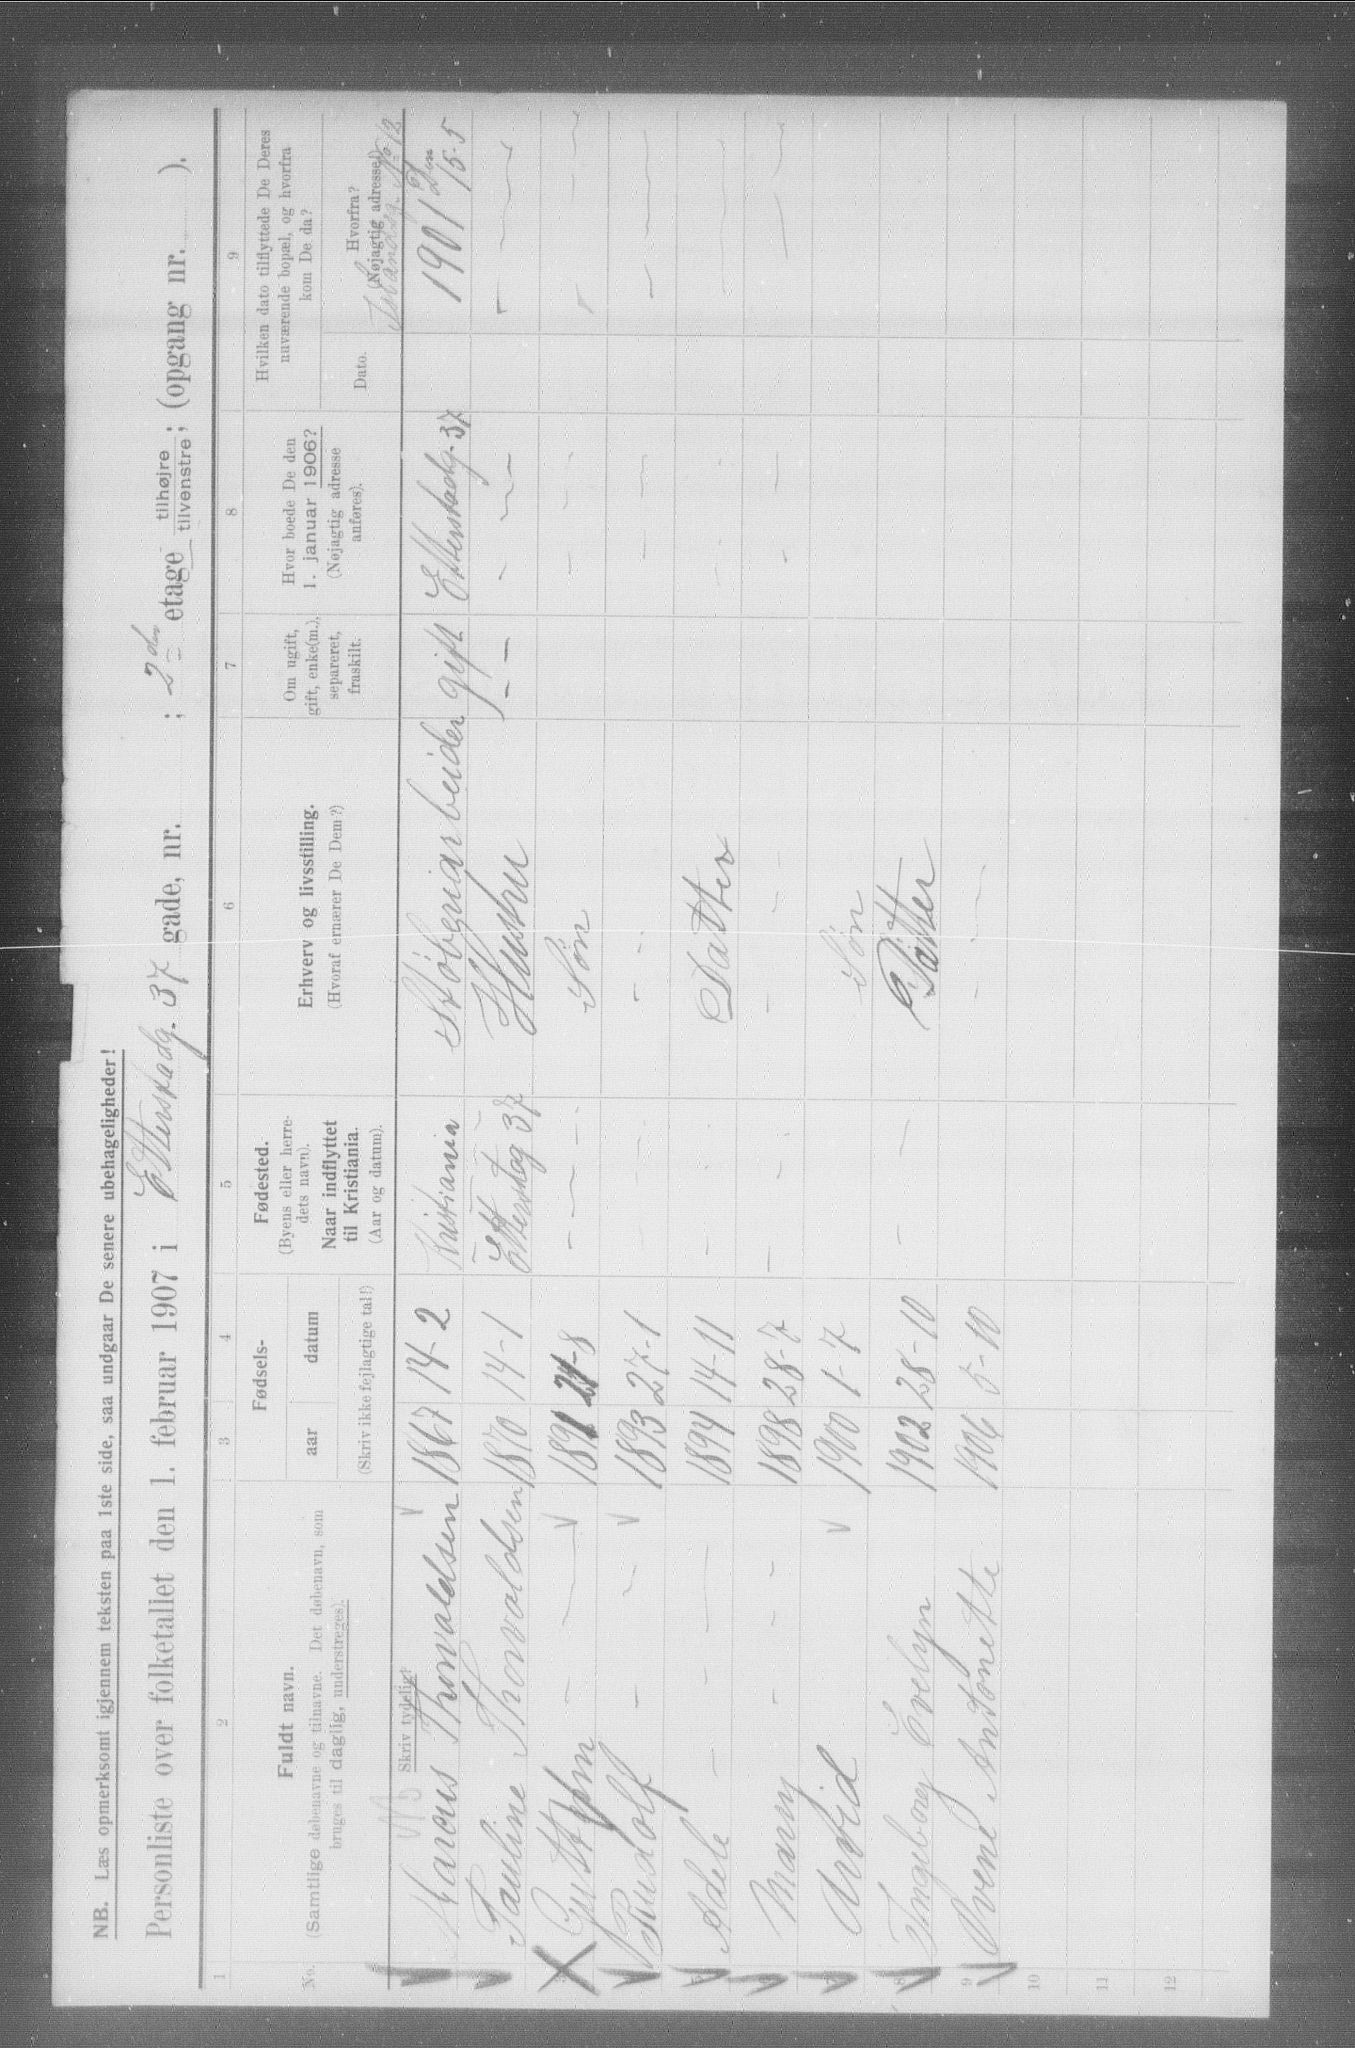 NB. Læs opmerksomt igjennem teksten paa 1ste side, saa undgaar De senere ubehageligheder!
Personliste over folketallet den 1. februar 1907 i Etterstadg. 37 gade, nr. ; 2den etage tilhøjre / tilvenstre; (opgang nr. ).
1 2 3 4 5 6 7 8 9
No.
Fuldt navn.
(Samtlige døbenavne og tilnavne. Det døbenavn, som
bruges til daglig, understreges).
Skriv tydeligt
Fødsels-
aar datum
(Skriv ikke fejlagtige tal!)
Fødested.
(Byens eller herre-
dets navn).
Naar indflyttet
til Kristiania.
(Aar og datum).
Erhverv og livsstilling.
(Hvoraf ernærer De Dem?)
Om ugift,
gift, enke(m.),
separeret,
fraskilt.
Hvor boede De den
1. januar 1906?
(Nøjagtig adresse
anføres).
Hvilken dato tilflyttede De Deres
nuværende bopæl, og hvorfra
kom De da?
Dato.
Hvorfra?
(Nøjagtig adresse.)
No 12
Marcus Thorvaldsen 1867 14-2 Kristiania Støberiarbeider gift Etterstadg. 37 1901 Den 15-5
Pauline Thorvaldsen 1870 14-1 Etterstag 37 Hustru - -
3 - 1891 24-8 - Søn - -
Rudolf - 1893 27-1 - - - - -
Adele - 1894 14-11 - Datter -
Marry - 1898 28-7 - - - - -
Arvid 1900 1-7 Søn
8 Ingeborg Evelyn 1902 28-10 - Datter
9 Svene Antonette 1906 5-10 - -
10
11
12